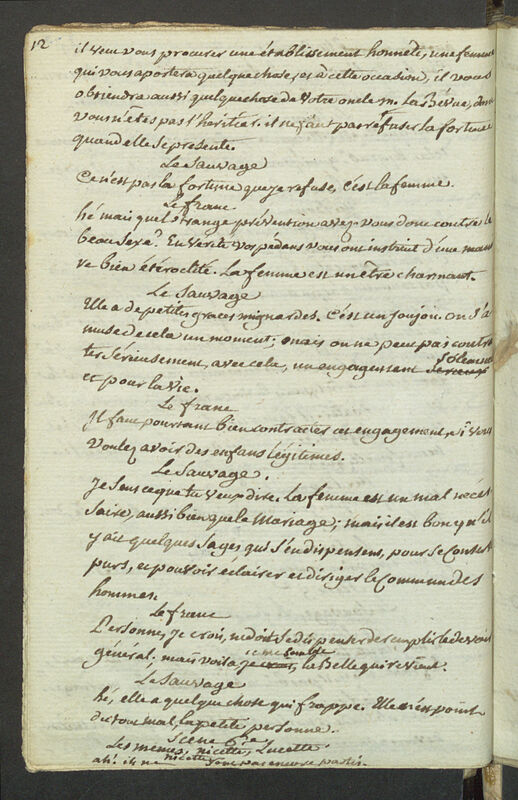 12
il veut vous procurer une établissement honnête, une femme
qui vous aportera quelque chose, et à cette occasion, il vous
obtiendra aussi quelque chose de votre oncle m. La Bévue, dont
vous n'êtes pas l'heritier. il ne faut pas refuser la fortune
quand elle se présente.
Le Sauvage
Ce n'est pas la fortune que je refuse, c'est la femme.
Le franc
hé mais quel étrange prévention avez-vous donc contre le
beau Sexe? En vérité vos pédans vous ont instruit d'une manie
re bien étéroclite. La femme est un être charmant.
Le Sauvage
Elle a de petites graces mignardes. C'est un joujou. on s'a
muse de cela un moment; mais on ne peut pas contrac
ter sérieusement, avec cela, un engagement solemnel
et pour la vie.
Le franc
Il faut pourtant bien contracter cet engagement, si vous
voulez avoir des enfans légitimes.
Le Sauvage.
Je sens ce que tu veux dire. La femme est un mal néces
saire, aussi bien que le Mariage; mais il est bon qu'il
y ait quelques Sages qui s'en dispensent, pour se conserver
purs, et pouvoir eclairer et diriger le Commun des
hommes.
Le franc
Personne, je crois, ne doit se dispenser de remplir le devoir
général; mais voila, ce me semble, la Belle qui revient.
Le Sauvage
hé, elle a quelque chose qui frappe. Elle n'est point
du tout mal, la petite personne.
Scene 6e.
Les memes, nicette, Lucette.
nicette
ah! il ne sont pas encore partis.